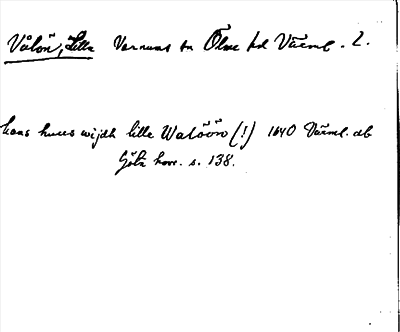 Vålön, Lilla Varnums sn Ölme hd Värml. l.
hans huus wijdh lille Walöön (!) 1640 Värml. db
Göta hovr. s. 138.